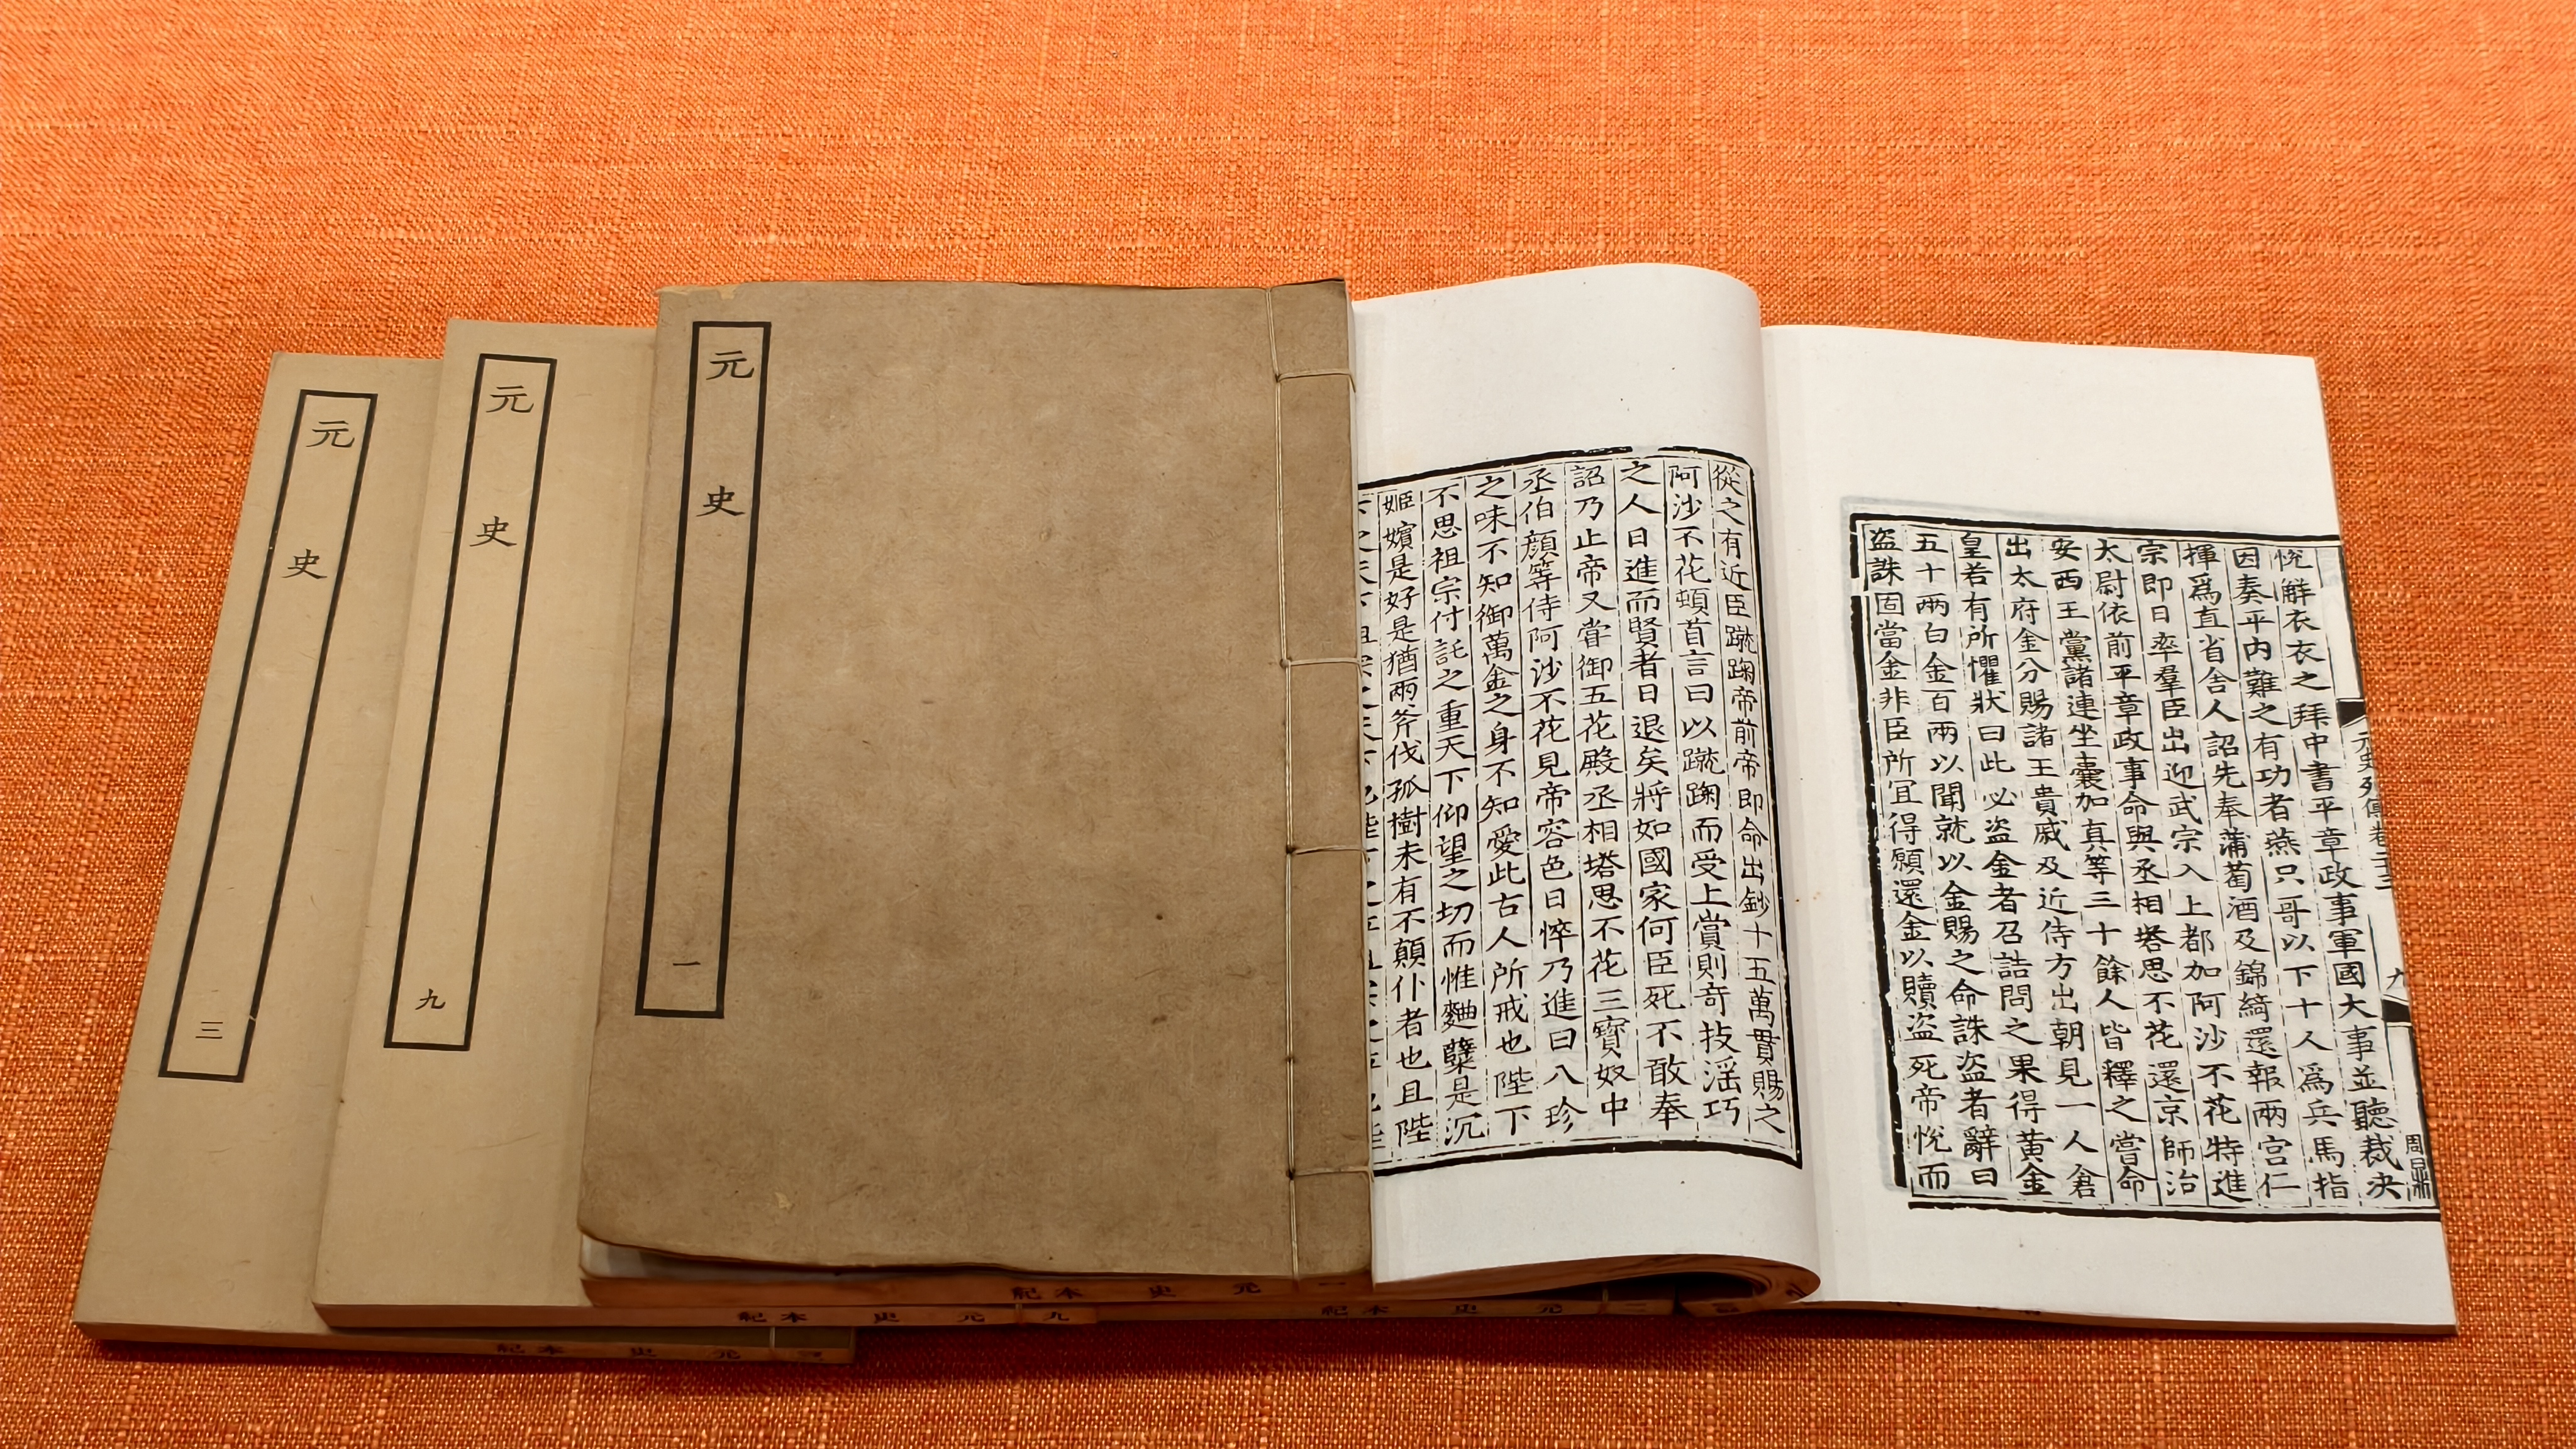 元史
三
元史
九
元史
一
元史列傳卷二十三
九
周鼎
悅解衣衣之拜中書平章政事軍國大事並聽裁決
因奏平内難之有功者燕只哥以下十人爲兵馬指
揮爲直省舍人詔先奉蒲萄酒及錦綺還報兩宮仁
宗即日率羣臣出迎武宗入上都加阿沙不花特進
太尉依前平章政事命與丞相塔思不花還京師治
安西王黨諸連坐囊加真等三十餘人皆釋之嘗命
出太府金分賜諸王貴戚及近侍方出朝見一人倉
皇若有所懼狀曰此必盜金者召詰問之果得黃金
五十兩白金百兩以聞就以金賜之命誅盜者辭曰
盜誅固當金非臣所宜得願還金以贖盜死帝悅而
從之有近臣蹴踘帝前帝即命出鈔十五萬貫賜之
阿沙不花頓首言曰以蹴踘而受上賞則奇技淫巧
之人日進而賢者日退矣將如國家何臣死不敢奉
詔乃止帝又嘗御五花殿丞相塔思不花三寶奴中
丞伯顏等侍阿沙不花見帝容色日悴乃進曰八珍
之味不知御萬金之身不知愛此古人所戒也陛下
不思祖宗付託之重天下仰望之切而惟麯蘖是沉
姬嬪是好是猶兩斧伐孤樹未有不顛仆者也且陛
一 元史 本紀
九 元史 本紀
二 元史 本紀
三 元史 本紀